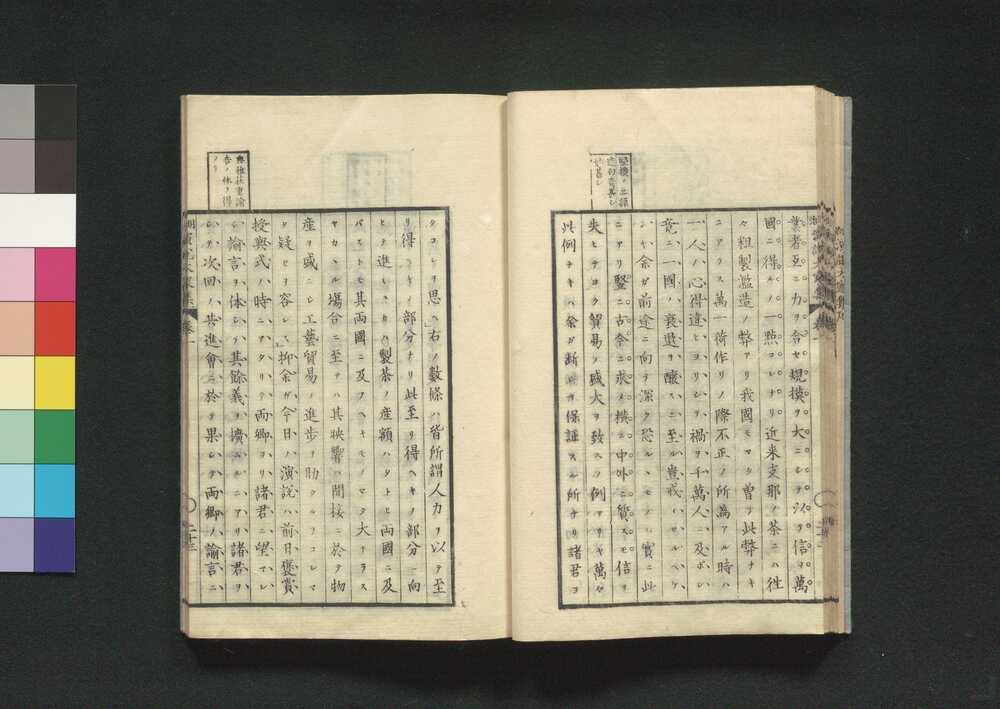 業者互ニ力ヲ合セ規模ヲ大ニシテ以テ信ヲ萬
國ニ得ルノ一點コレナリ近来支那ノ茶ニハ徃
々粗製濫造ノ弊アリ我國モマタ曽テ此弊ナキ
ニアラス萬一荷作リノ際不正ノ所為アル時ハ
一人ノ心得違ヒヨリシテ禍ヲ千萬人ニ及ボシ
竟ニ一國ノ衰退ヲ醸スニ至ル豈戒ノサルベケ
ンヤ余ガ前途ニ向テ深ク恐ルヽモノハ實ニ此
ニアリ竪ニ古今ニ求ノ横ニ中外ニ質スモ信ヲ
失ヒテヨク貿易ノ盛大ヲ致スノ例アリヤ萬々
此例ナキハ余ガ断シテ保證スル所ナリ諸君コ
タコレヲ思ヘ右ノ數條ハ皆所謂人力ヲ以テ至
リ得ヘキノ部分ナリ此至リ得ヘキノ部分ニ向
ヒテ進ミ
製茶ノ産額ハタトヒ両國ニ及
バズトモ其両國ニ及フヘキモノマタ大ナラス
ヤカヽル塲合ニ至テハ其映響ハ間接ニ於テ物
産ヲ盛ニシ工藝貿易ノ進歩ヲ助クルヿコレマ
タ疑ヒヲ容レス抑余ガ今日ノ演説ハ前日褒賞
授與式ノ時ニアタリテ両卿ヨリ諸君ニ望マレ
シ諭言ヲ体シ其餘義ヲ擴ムルニアリ諸君ヲ
シテ次回ノ共進會ニ於テ果シテ両卿ノ諭言ニ
卷一
二十三